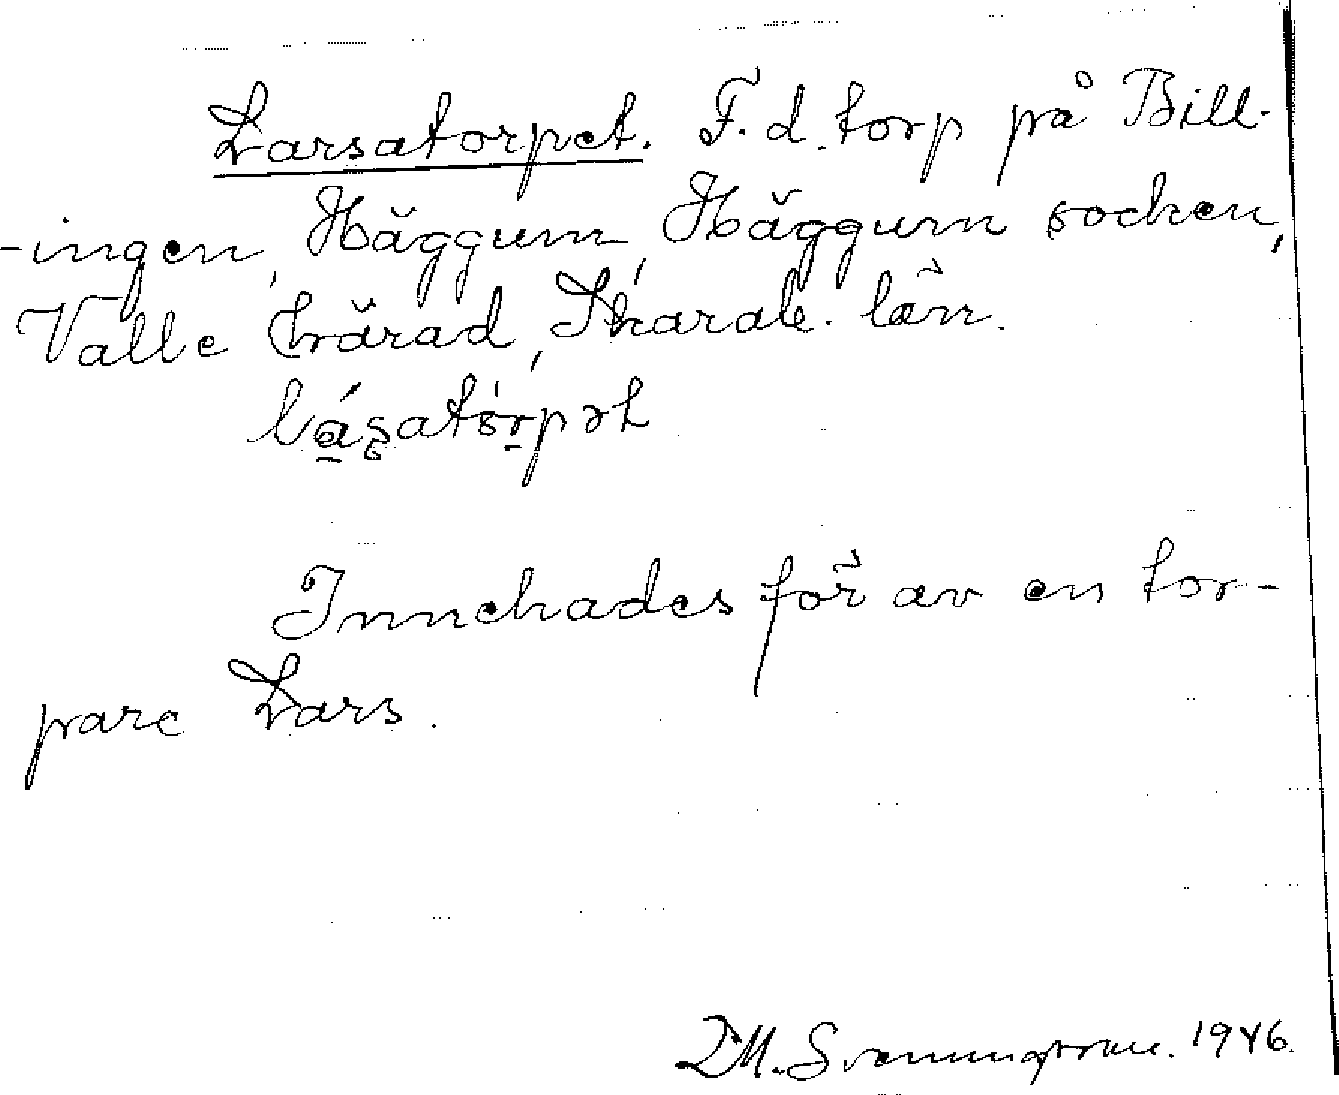 Larsatorpet. F.d. torp på Bill-
-ingen, Häggum, Häggum socken,
Valle härad, Skarab. län.
Innehades förr av en tor-
pare Lars.
1946.